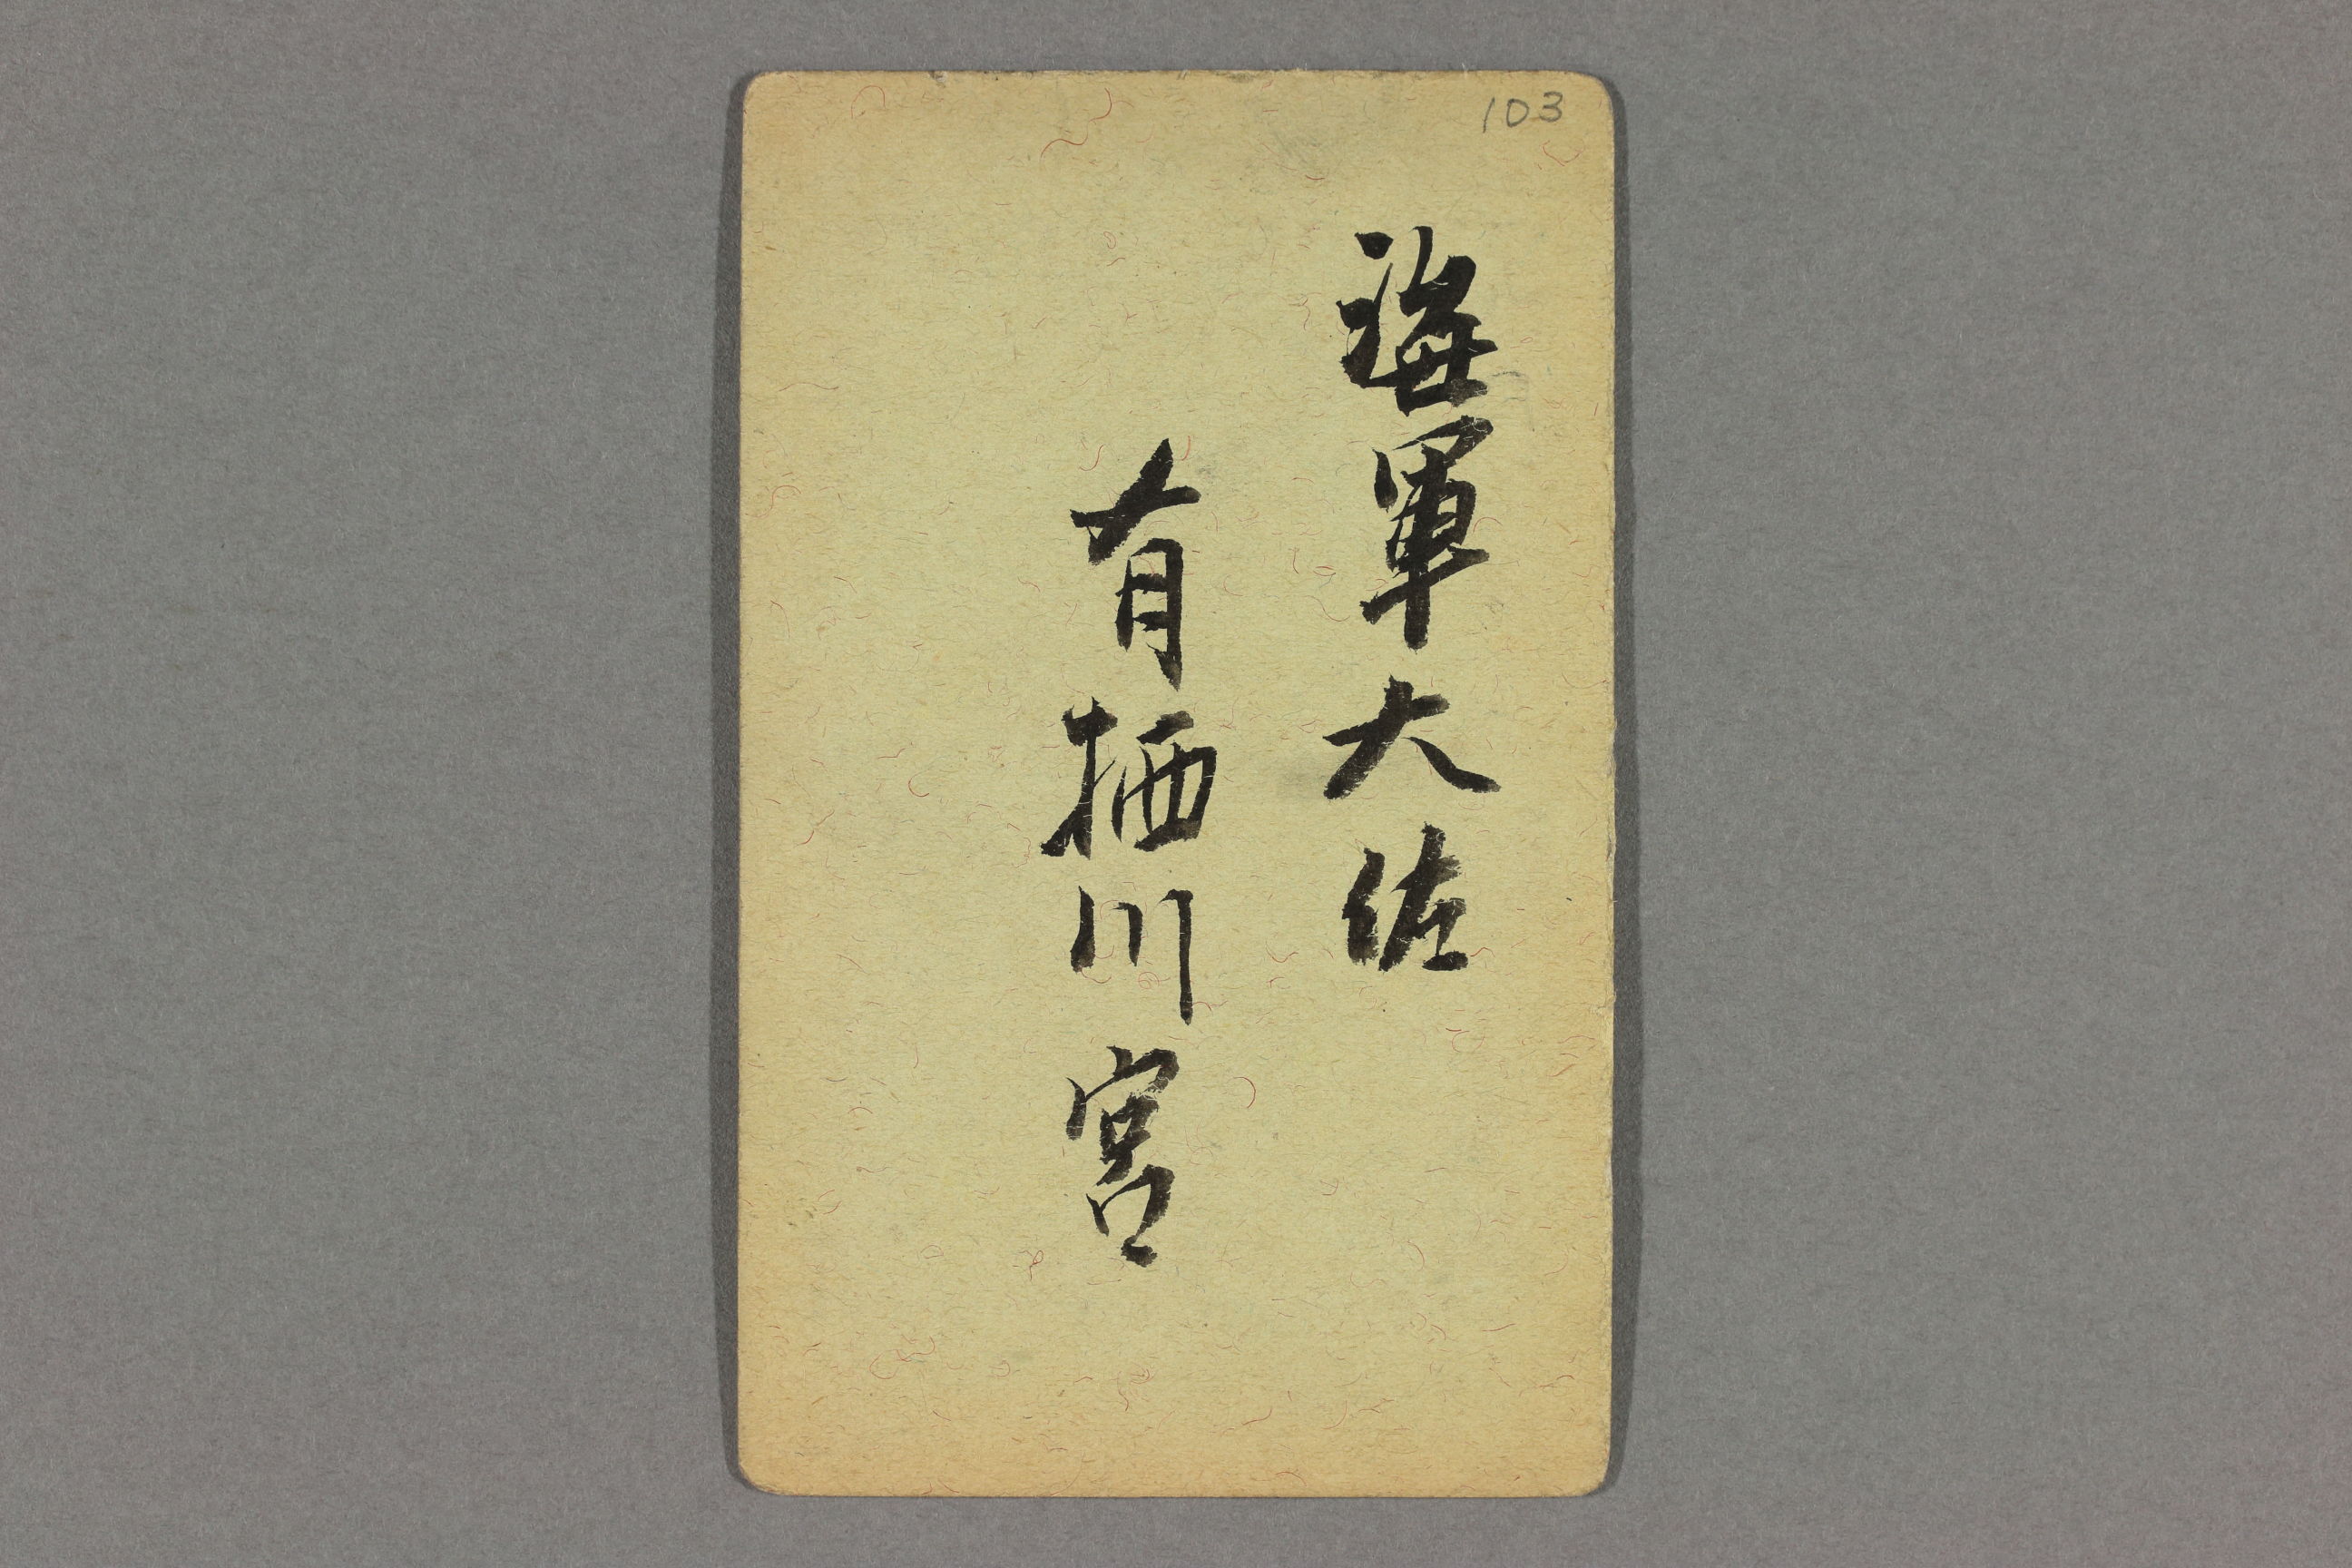 103
海軍大佐
有栖川宮